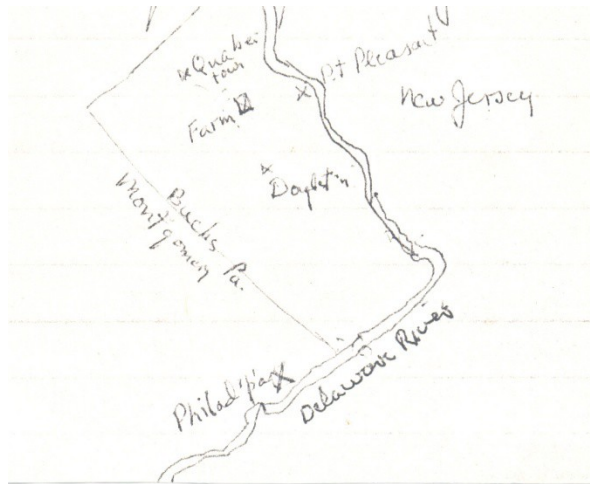 Quaker
town
Pt Pleasant
New Jersey
Farm
Doylst'n
Bucks Pa.
Montgomery
Philad'pa
Delaware River